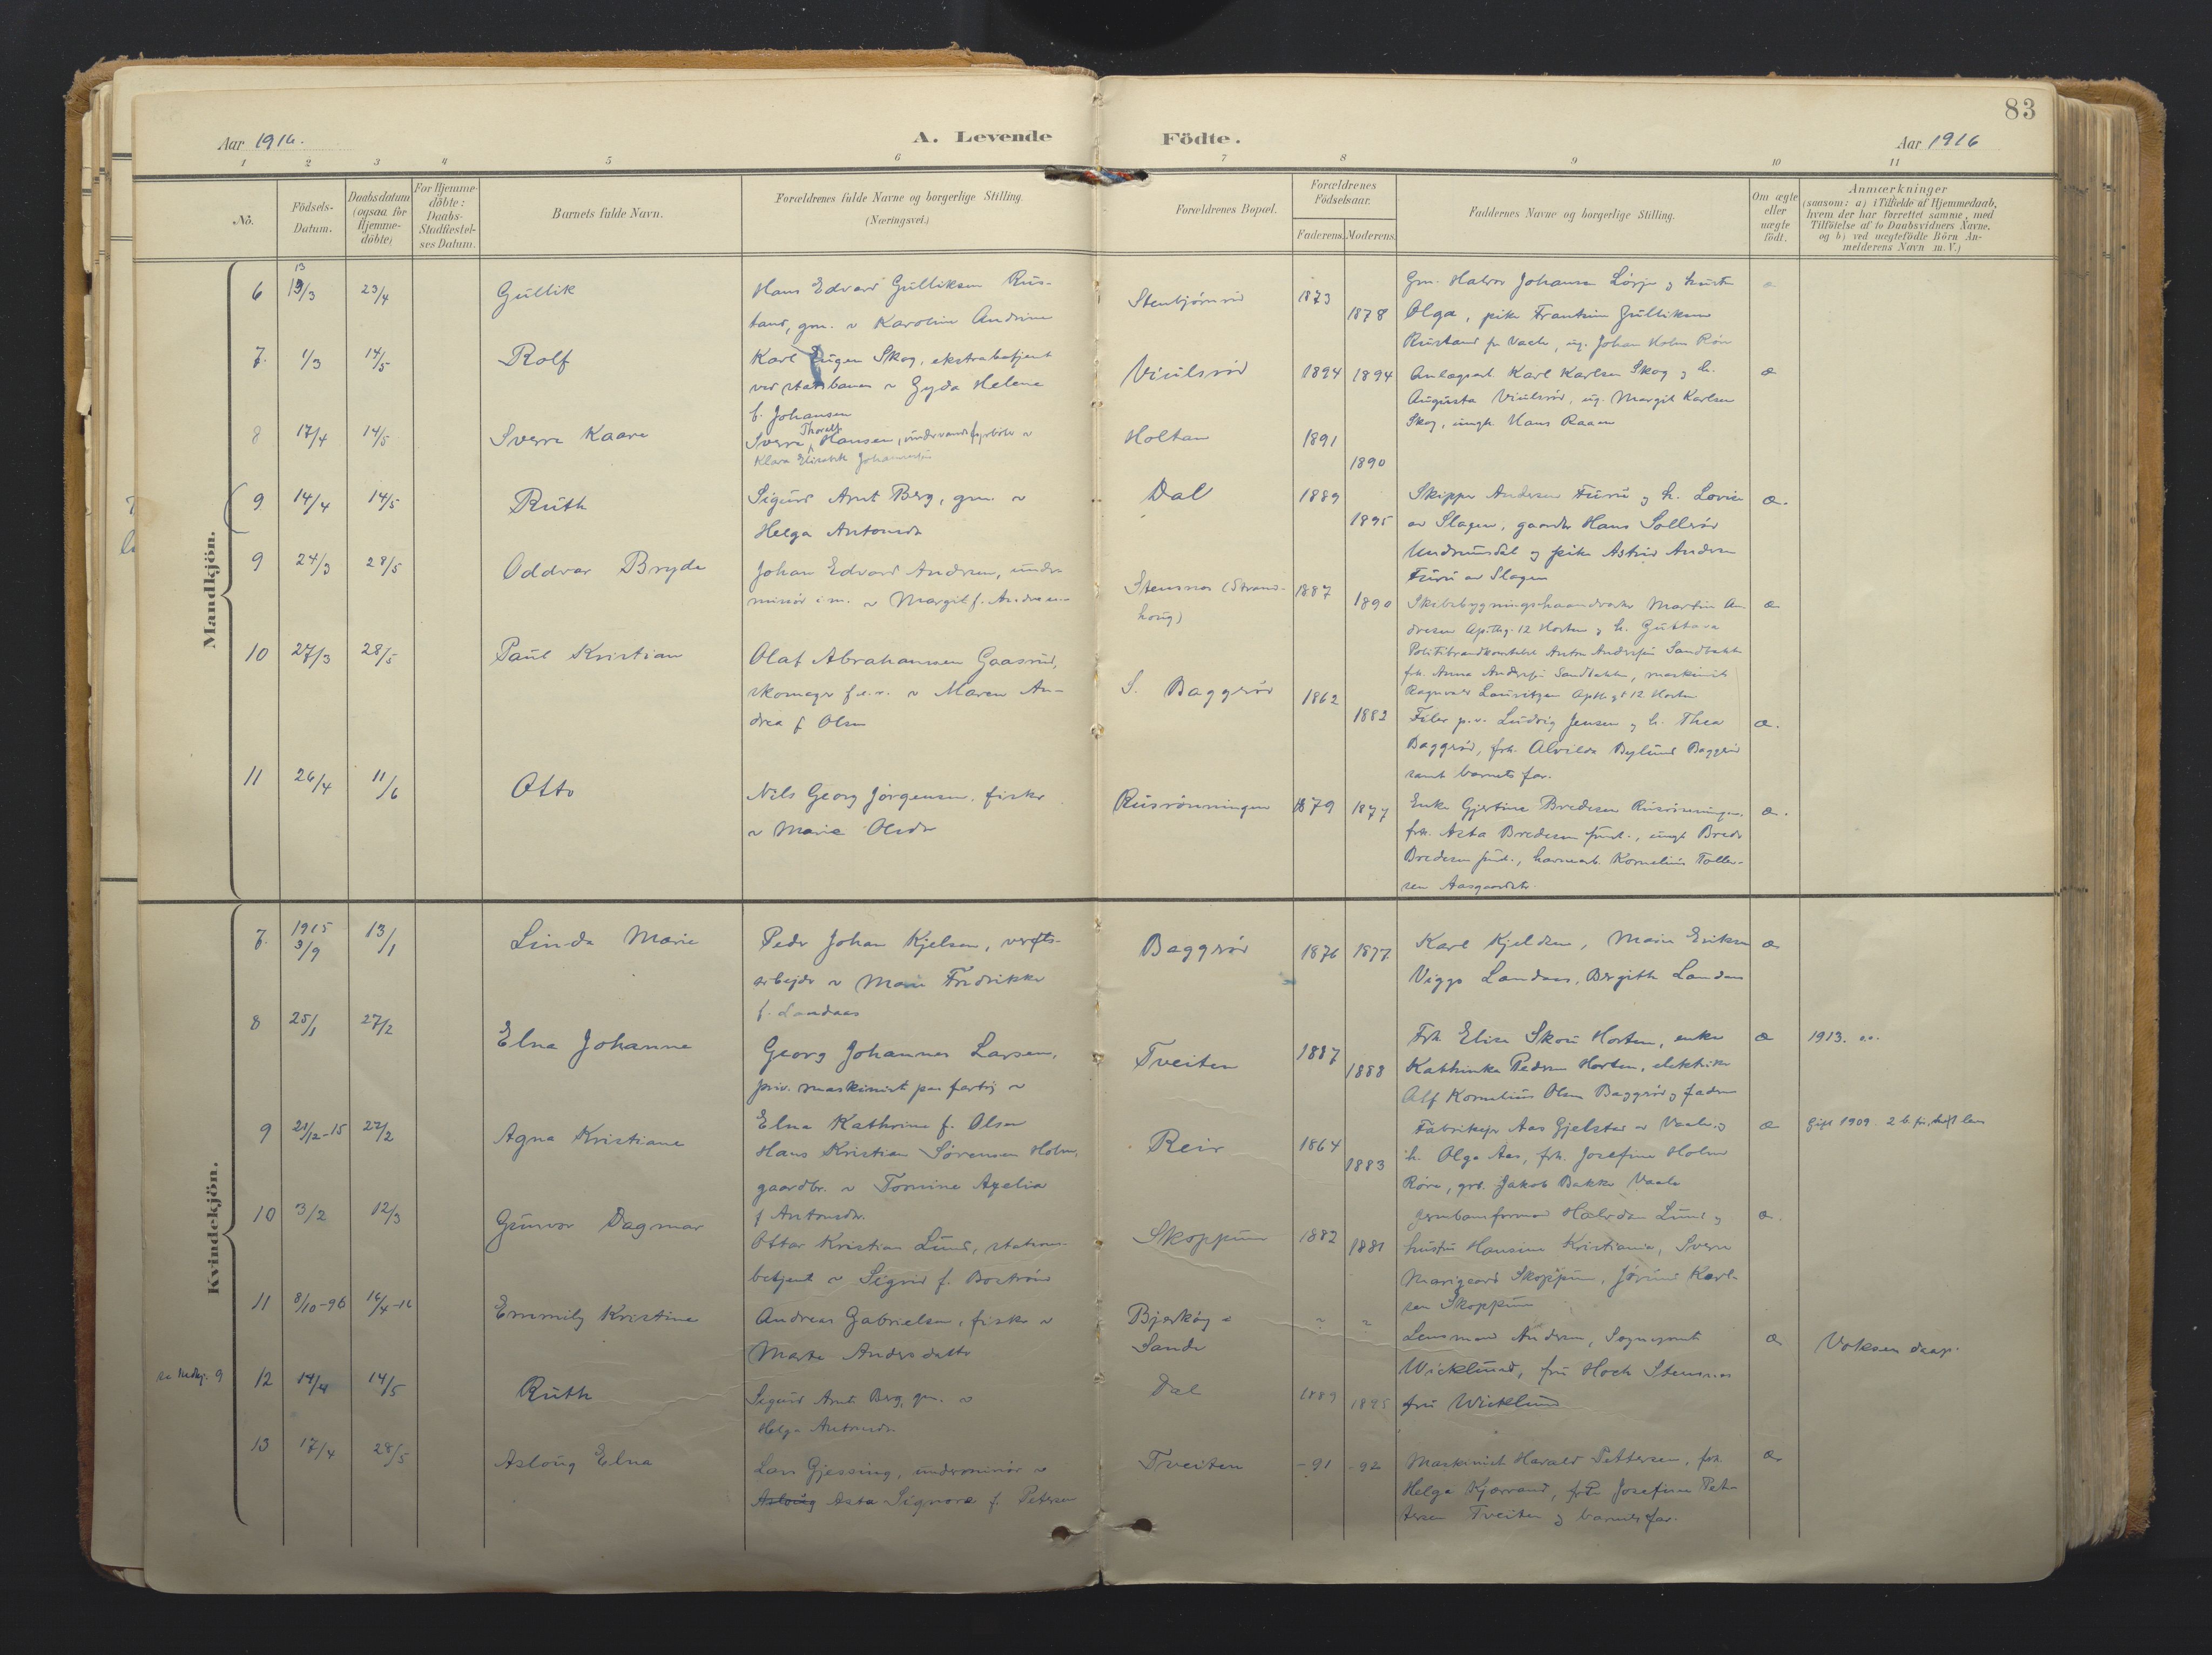 83
Aar 1916.
A. Levende Födte.
Aar 1916
1 2 3 4 5 6 7 8 9 10 11
No.
Födsels-
Datum.
Daabsdatum
(ogsaa for
Hjemme-
döbte)
For Hjemme-
döbte:
Daabs-
Stadfæstel-
ses Datum.
Barnets fulde Navn.
Forældrenes fulde Navne og borgerlige Stilling.
(Næringsvei.)
Forældrenes Bopæl.
Forældrenes
Födselsaar.
Faderens. Moderens.
Faddernes Navne og borgerlige Stilling.
Om ægte
eller
uægte
födt.
Anmærkninger
(saasom: a) i Tilfælde af Hjemmedaab,
hvem der har forrettet samme, med
Tilföielse af to Daabsvidners Navne,
og b) ved uægtefödte Börn An-
melderens Navn m. V.)
Mandkjön.
6 13/3 23/4 Gullik
Hans Edvard Gulliksen Rus-
tand, gm. v Karoline Andrine
Stenbjörnrød 1873 1878
Gm. Halvor Johansen
Olga, pike Frantsine Gulliksen
Rustand
7. 1/3 14/5 Rolf
Karl Eugen Skog, ekstrabetjent
ved statsbanen v Gyda Helene
f. Johansen
Viulsrød 1894 1894 æ
Anlægsarb. Karl Karlsen Skog og h.
Augusta Viulsrød, ug. Margit Karlsen
Skog, ungk. Hans Raaen
8 17/4 14/5 Sverre Kaare
Sverre Thoralf Hansen,
Klara Elisabeth
Holtan 1891 1890
9 14/4 14/5 Ruth
Sigurd Arnt Berg, gm. v
Helga Antonsdr
Dal 1889 1895 æ.
Skipper Andersen Furu og h. Lovise
av Slagen, gaardbr Hans Sollerød
Undrumsdal og pike Astrid Andersen
Furu av Slagen
9 24/3 28/5 Oddvar Bryde
Johan Edvard Andresen, under-
minør i m. v Margit f. Andresen
Stensnes (Strand-
haug) 1887 1890 æ
Skibsbygningshaandverker Martin An-
dresen Apthg. 12 Horten og h. Gustava
Anton Andersen Sandbakk
frk. Anna Andersen Sandbakken, maskinist
Ragnvald Lauritzen Apthgt 12 Horten
10 27/3 28/5 Paul Kristian
Olaf Abrahamsen Gaasrud,
skomager f.e.r. v Maren An-
drea f Olsen
S. Baggerød 1862 1882 æ.
Filer p.v. Ludvig Jensen og h. Thea
Baggerød, frk. Alvilda Bylund Baggerød
samt barnets far.
11 26/4 11/6 Otto
Nils Georg Jørgensen, fisker
v Marie Olsdr
Rusrønningen 1879 1877 æ.
Enke Gjertine Bredesen Rusrønningen,
frk. Asta Bredesen smst., ungk Brede
Bredesen smst., havnearb. Kornelius Tollef-
sen Aasgaardstr.
Kvindekjön.
7. 1915 3/9 13/1 Linda Marie
Peder Johan Kjelsen, verfts-
arbejder v Marie Fredrikke
f. Landaas
Baggerød 1876 1877 æ
Karl Kjeldsen, Marie Eriksen
Viggo Landaas, Bergithe Landaas
8 25/1 27/2 Elna Johanne
Georg Johannes Larsen,
priv. maskinist paa fartøj v
Elna Kathrine f. Olsen
Tveiten 1887 1888 æ 1913.
Frk. Elise Skou Horten, enke
Kathinka Pedersen Horten, elektriker
Alf Kornelius Olsen Baggerød og faderen
9 21/12-15 27/2 Agna Kristiane
Hans Kristian Sørensen Holm,
gaardbr. v Tomine Axelia
f Antonsdr.
Reir 1864 1883 æ Gift 1909
Fabrikeier Aas Gjelstad v Vaale og
h. Olga Aas, frk. Josefine Holm
Røra, grd. Jakob Bakke Vaale
10 3/2 12/3 Gunvor Dagmar
Ottar Kristian Lund, stations-
betjent v Sigrid f. Boströn
Skoppum 1882 1881 æ.
Jernbanformand Halvdan Lund og
hustru Hansine Kristiania, Sverre
Marigaard Skoppum, Jørund Karl-
sen Skoppum
11 8/10-96 16/4-16 Emmily Kristine
Andreas Gabrielsen, fisker v
Marte Andersdatter
Bjerkøy
Sande æ Voksen daap.
Lensmand Andersen, Sogneprest
Wicklund, fru Hoch Stensnes
fru Wicklund
se Mdkj. 9
12 14/4 14/5 Ruth
Sigurd Arnt Berg, gm. v
Helga Antonsdr
Dal 1889 1895
13 17/4 28/5 Aslaug Elna
Lars Gjessing, underminør v
Aslaug Asta Signora f. Petersen
Tveiten -91 -92 æ
Maskinist Harald Pettersen, frk.
Helga Kjærrand, frk Josefine Pet-
tersen Tveiten og barnets far.